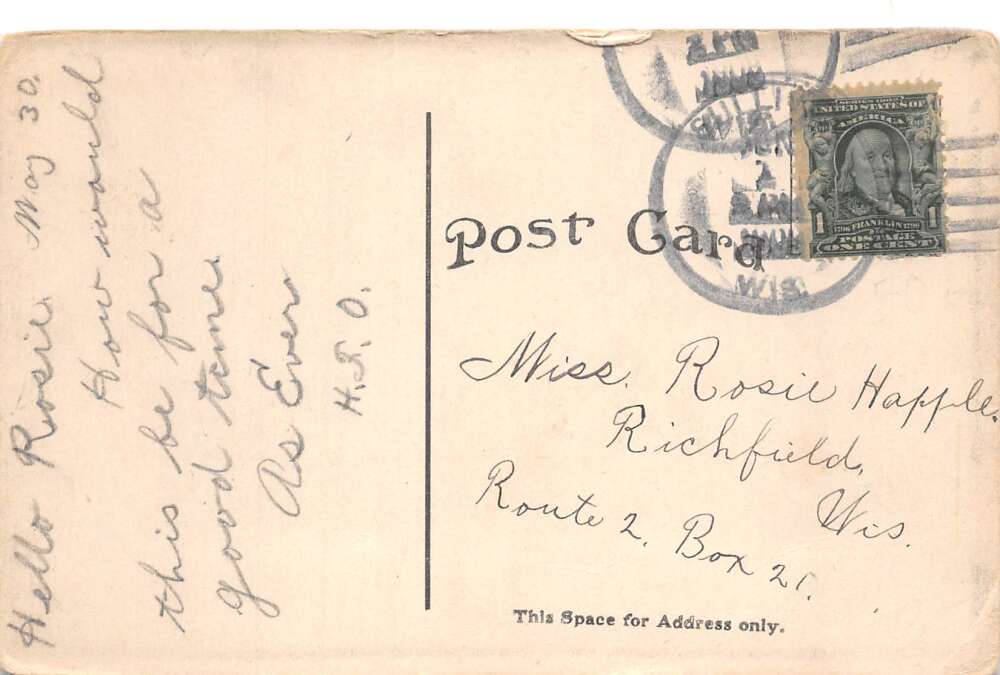 Hello Rosie. May 30.
How would
this be for a
good time
As Ever
H.F.O.
Post Card
Miss. Rosie Happle.
Richfield,
Wis.
Route 2. Box 21.
This Space for Address only.
SERIES 1902
UNITED STATES OF
AMERICA
1 1
1706 FRANKLIN 1790
POSTAGE
ONE CENT
JUN
1
WIS.